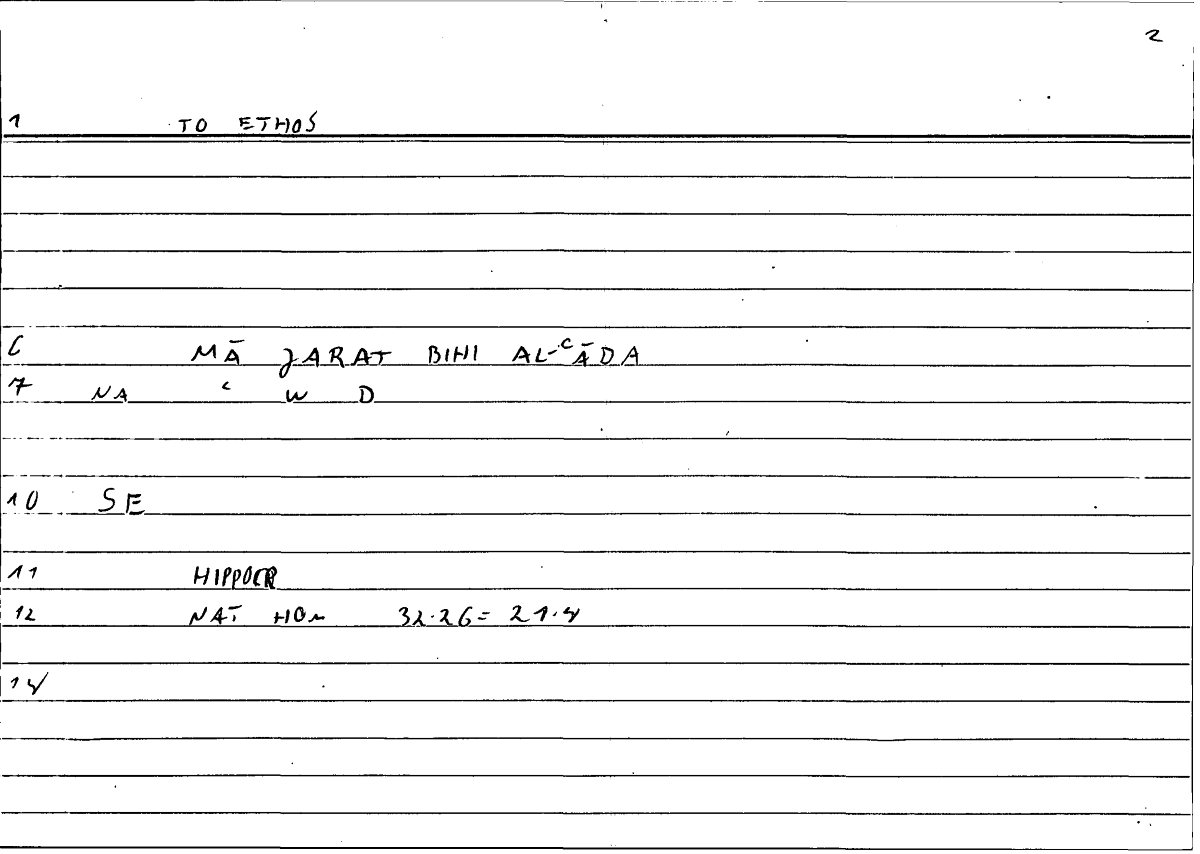 2
1 TO ETHOS
6 MĀ JARAT BIHI AL-ʿĀDA
7 NA ʿ W D
10 SE
11 HIPPOCR
12 NAT HOM 32.26 = 21.4
14